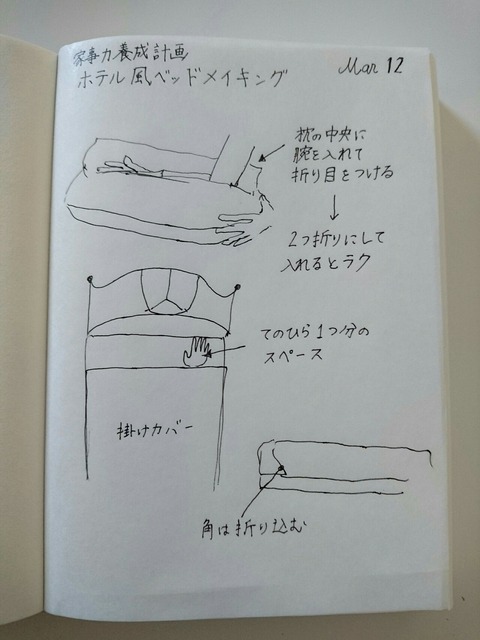 家事力養成計画
ホテル風ベッドメイキング
Mar 12
枕の中央に
腕を入れて
折り目をつける
↓
2つ折りにして
入れるとラク
てのひら1つ分の
スペース
掛けカバー
角は折り込む